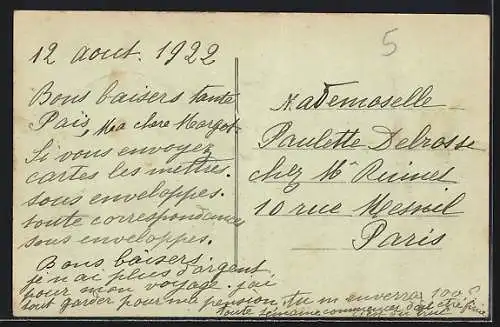 12 aout. 1922
5
Bons baisers tante
Pais, Ma chere Margot
Si vous envoyez
cartes les mettre.
sous enveloppes.
toute correspondance
sous enveloppes.
Bons baisers.
je n'ai plus d'argent
pour mon voyage. j'ai
tout garder pour ma pension. tu m enverras 100f
toute semaine commencer
Mademoselle
Paulette Delrosse
chez Mr
10 rue Mesnil
Paris